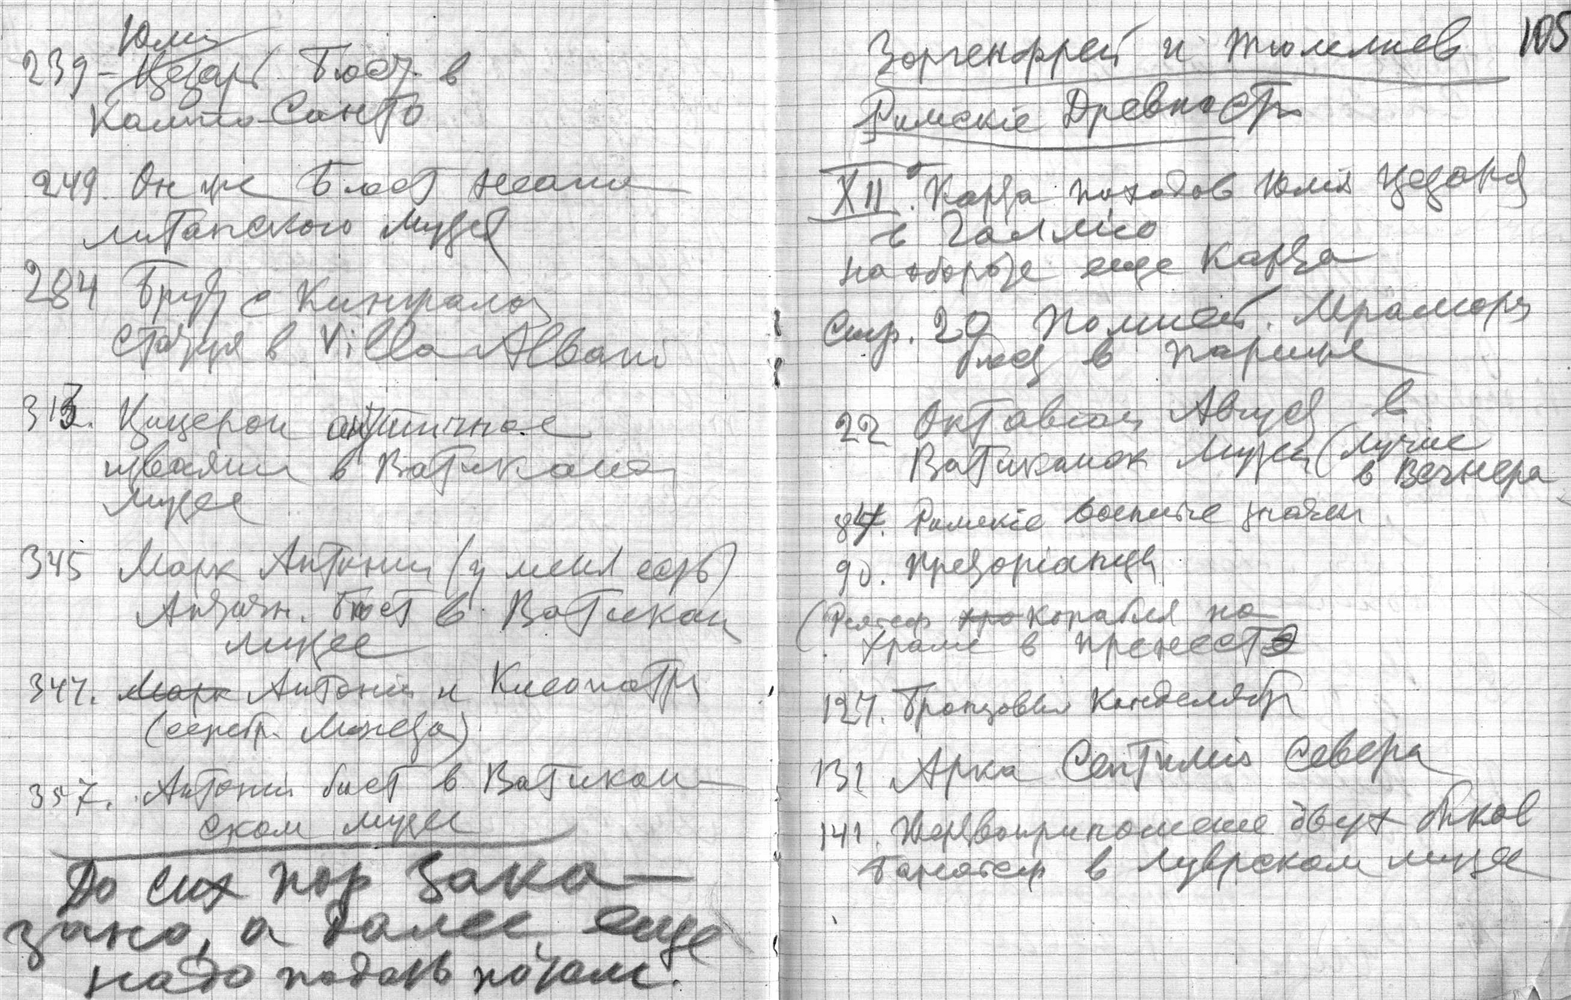 Юлий
239 – Цезарь. Бюст в
Кампо-Санто
249. Он же Бюст неапо-
литанского музея
284 Брут с кинжалом
статуя в Villa Albani
313. Цицерон античное
изваяние в Ватикано
музее
345 Марк Антоний (у меня есть)
Античн. бюст в Ватикан
музее
347. Марк Антоний и Клеопатра
(серебр. Монета)
357. Антоний бюст в Ватикан-
ском музее
До сих пор зака-
зано, а далее еще
надо подать потом.
105
Зоргенфрей и Тюлелиев
Римскіе Древности
XII. Карта походов Юлія Цезаря
в Галлію
на обороте еще карта
Стр. 20 Помпей. Мраморн
бюст в Париже
22 Октавіан Август в
Ватиканск музеи (лучше
в Вегнера
87. Римскіе военные значки
90. Преторіанцы
(Рельеф корабля на
храме в Пренесте
127. Бронзовый канделябр
131 Арка Септимія Севера
141. Жертвоприношение двух быков
барельеф в Луврском музее